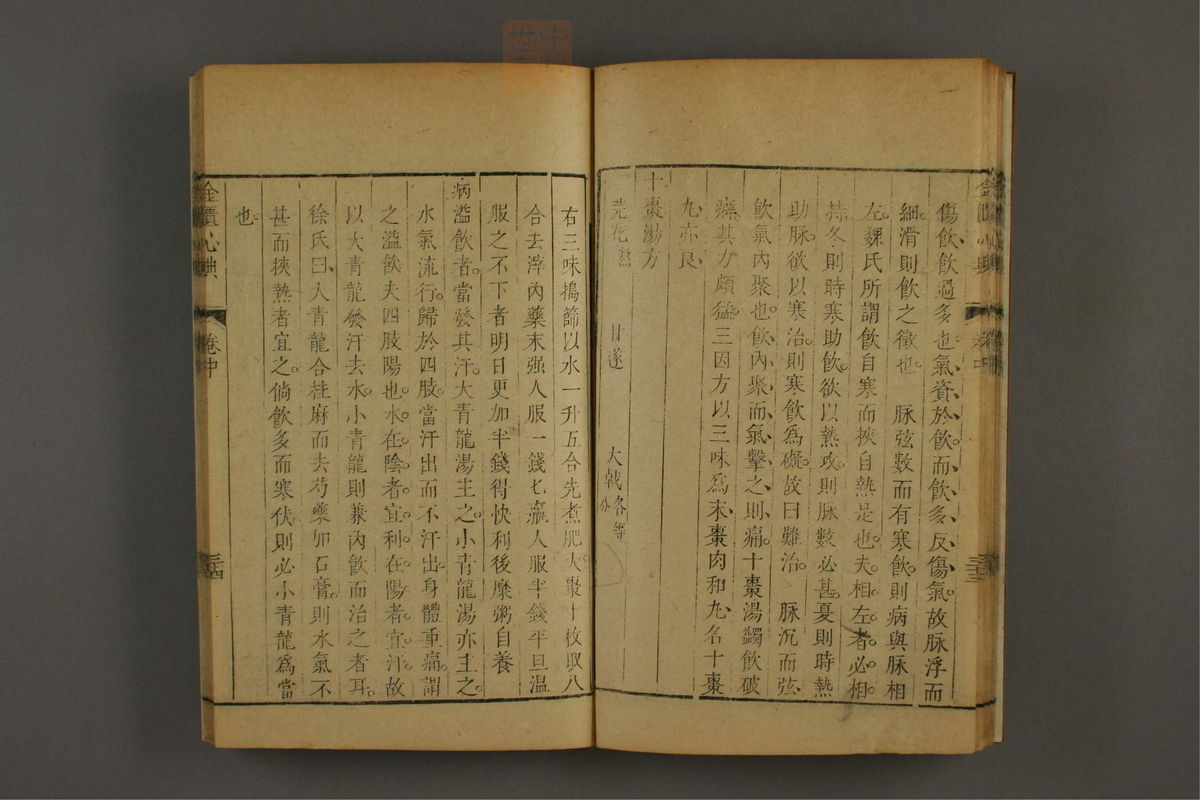 傷飲飲過多也氣資於飲而飲多反傷氣故脉浮而
細滑則飲之徵也　脉弦數而有寒飲則病與脉相
左魏氏所謂飲自寒而挾自熱是也夫相左者必相
持冬則時寒助飲欲以熱攻則脉數必甚夏則時熱
助脉欲以寒治則寒飲爲礙故曰難治　脉沉而弦
飲氣內聚也飲內聚而氣擊之則痛十棗湯蠲飲破
癖其力頗猛三因方以三味爲末棗肉和丸名十棗
丸亦良
十棗湯方
芫花熬　甘遂　大戟各等分
右三味搗篩以水一升五合先煮肥大棗十枚取八
合去滓內藥末强人服一錢匕羸人服半錢平旦温
服之不下者明日更加半錢得快利後糜粥自養
病溢飲者當發其汗大青龍湯主之小青龍湯亦主之
水氣流行歸於四肢當汗出而不汗出身體重痛謂
之溢飲夫四肢陽也水在陰者宜利在陽者宜汗故
以大青龍發汗去水小青龍則兼內飲而治之者耳
徐氏曰大青龍合桂麻而去芍藥加石膏則水氣不
甚而挾熱者宜之倘飲多而寒伏則必小青龍爲當
也
金匱心典
卷中
三十四